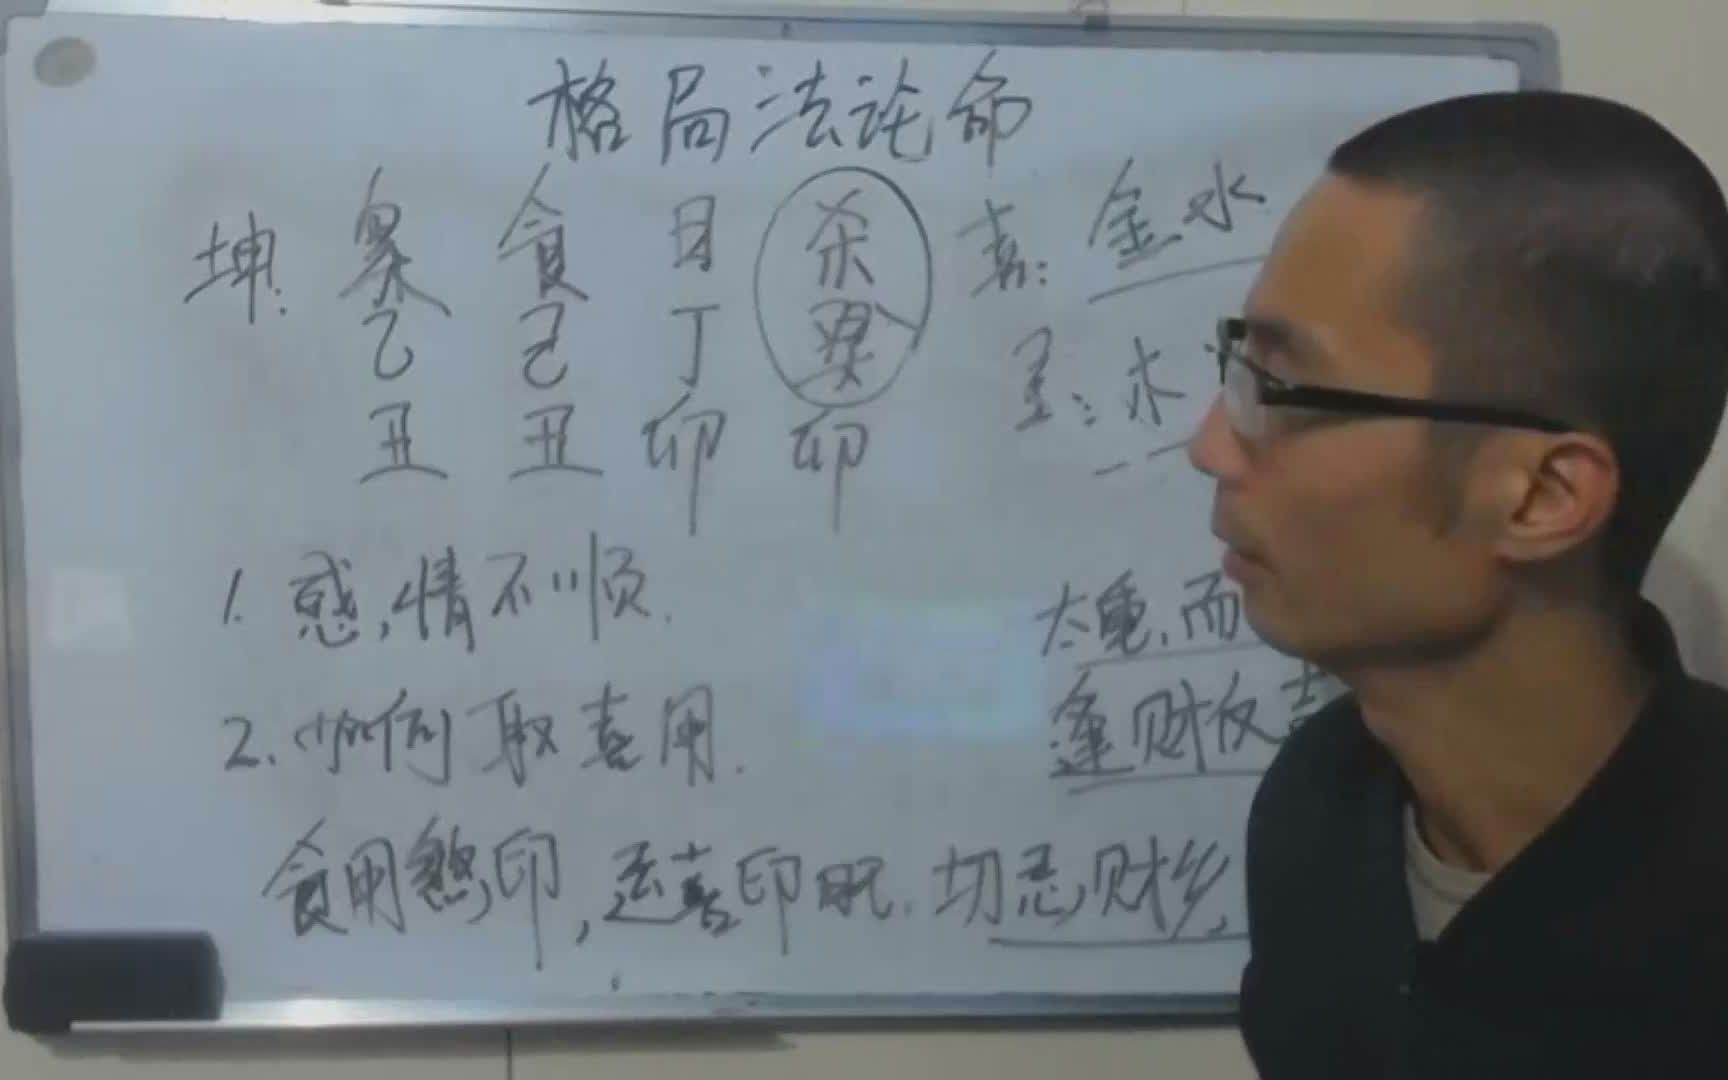 格局法论命
坤: 枭 食 日 杀 喜: 金水
乙 己 丁 癸
丑 丑 卯 卯
1. 感情不顺.
2. 如何取喜用.
太 而
逢财反吉
食用煞印, 运喜印旺. 切忌财乡,